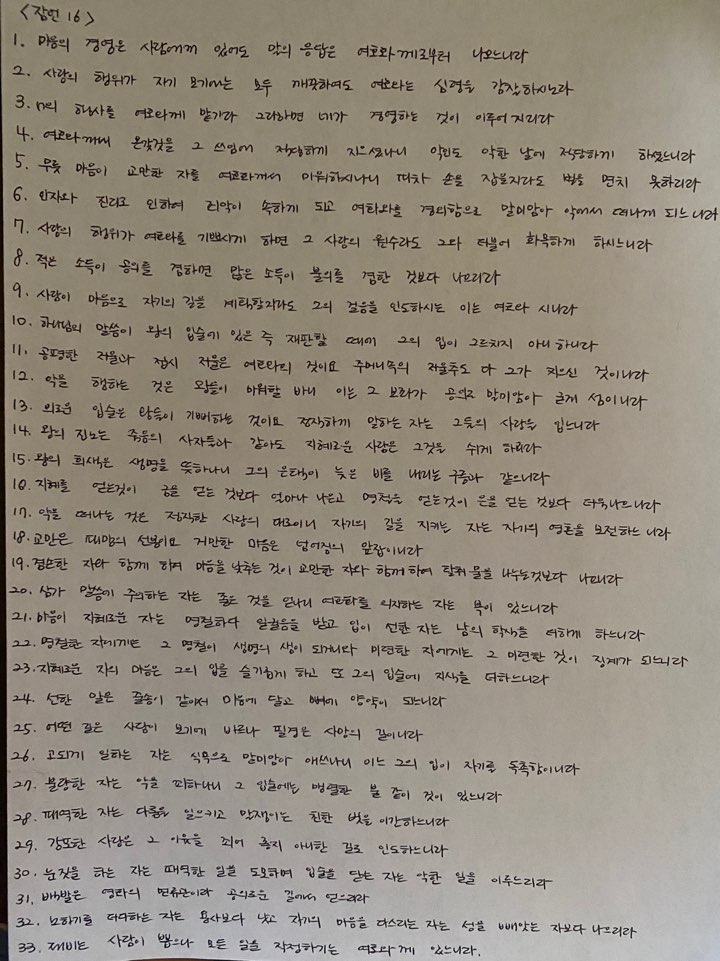 <잠언 16>
1. 마음의 경영은 사람에게 있어도 말의 응답은 여호와께로부터 나오느니라
2. 사람의 행위가 자기 보기에는 모두 깨끗하여도 여호와는 심령을 감찰하시느니라
3. 너의 행사를 여호와께 맡기라 그리하면 네가 경영하는 것이 이루어지리라
4. 여호와께서 온갖것을 그 쓰임에 적당하게 지으셨나니 악인도 악한 날에 적당하게 하셨느니라
5. 무릇 마음이 교만한 자를 여호와께서 미워하시나니 피차 손을 잡을지라도 벌을 면치 못하리라
6. 인자와 진리로 인하여 죄악이 속하게 되고 여호와를 경외함으로 말미암아 악에서 떠나게 되느니라
7. 사람의 행위가 여호와를 기쁘시게 하면 그 사람의 원수라도 그와 더불어 화목하게 하시느니라
8. 적은 소득이 공의를 겸하면 많은 소득이 불의를 겸한 것보다 나으니라
9. 사람이 마음으로 자기의 길을 계획할지라도 그의 걸음을 인도하시는 이는 여호와 시니라
10. 하나님의 말씀이 왕의 입술에 있은 즉 재판할 때에 그의 입이 그르치지 아니 하니라
11. 공평한 저울과 접시 저울은 여호와의 것이요 주머니속의 저울추도 다 그가 지으신 것이니라
12. 악을 행하는 것은 왕들이 미워할 바니 이는 그 보좌가 공의로 말미암아 굳게 섬이니라
13. 의로운 입술은 왕들이 기뻐하는 것이요 정직하게 말하는 자는 그들의 사랑을 입느니라
14. 왕의 진노는 죽음의 사자들과 같아도 지혜로운 사람은 그것을 쉬게 하리라
15. 왕의 희색은 생명을 뜻하나니 그의 은택이 늦은 비를 내리는 구름과 같으니라
16. 지혜를 얻는것이 금을 얻는 것보다 얼마나 나은고 명철을 얻는것이 은을 얻는 것보다 더욱나으니라
17. 악을 떠나는 것은 정직한 사람의 대로이니 자기의 길을 지키는 자는 자기의 영혼을 보전하느니라
18. 교만은 패망의 선봉이요 거만한 마음은 넘어짐의 앞잡이니라
19. 겸손한 자와 함께 하여 마음을 낮추는 것이 교만한 자와 함께하여 탈취물을 나누는것보다 나으니라
20. 삼가 말씀에 주의하는 자는 좋은 것을 얻나니 여호와를 의지하는 자는 복이 있느니라
21. 마음이 지혜로운 자는 명철하다 일컬음을 받고 입이 선한 자는 남의 학식을 더하게 하느니라
22. 명철한 자에게는 그 명철이 생명의 샘이 되거니와 미련한 자에게는 그 미련한 것이 징계가 되느니라
23. 지혜로운 자의 마음은 그의 입을 슬기롭게 하고 또 그의 입술에 지식을 더하느니라
24. 선한 말은 꿀송이 같아서 마음에 달고 뼈에 양약이 되느니라
25. 어떤 길은 사람이 보기에 바르나 필경은 사망의 길이니라
26. 고되게 일하는 자는 식욕으로 말미암아 애쓰나니 이는 그의 입이 자기를 독촉함이니라
27. 불량한 자는 악을 꾀하나니 그 입술에는 맹렬한 불 같이 것이 있느니라
28. 패역한 자는 다툼을 일으키고 말쟁이는 친한 벗을 이간하느니라
29. 강포한 사람은 그 이웃을 꾀어 좋지 아니한 길로 인도하느니라
30. 눈짓을 하는 자는 패역한 일을 도모하며 입술을 닫는 자는 악한 일을 이루느니라
31. 백발은 영화의 면류관이라 공의로운 길에서 얻으리라
32. 노하기를 더디하는 자는 용사보다 낫고 자기의 마음을 다스리는 자는 성을 빼앗는 자보다 나으니라
33. 제비는 사람이 뽑으나 모든 일을 작정하기는 여호와께 있느니라.